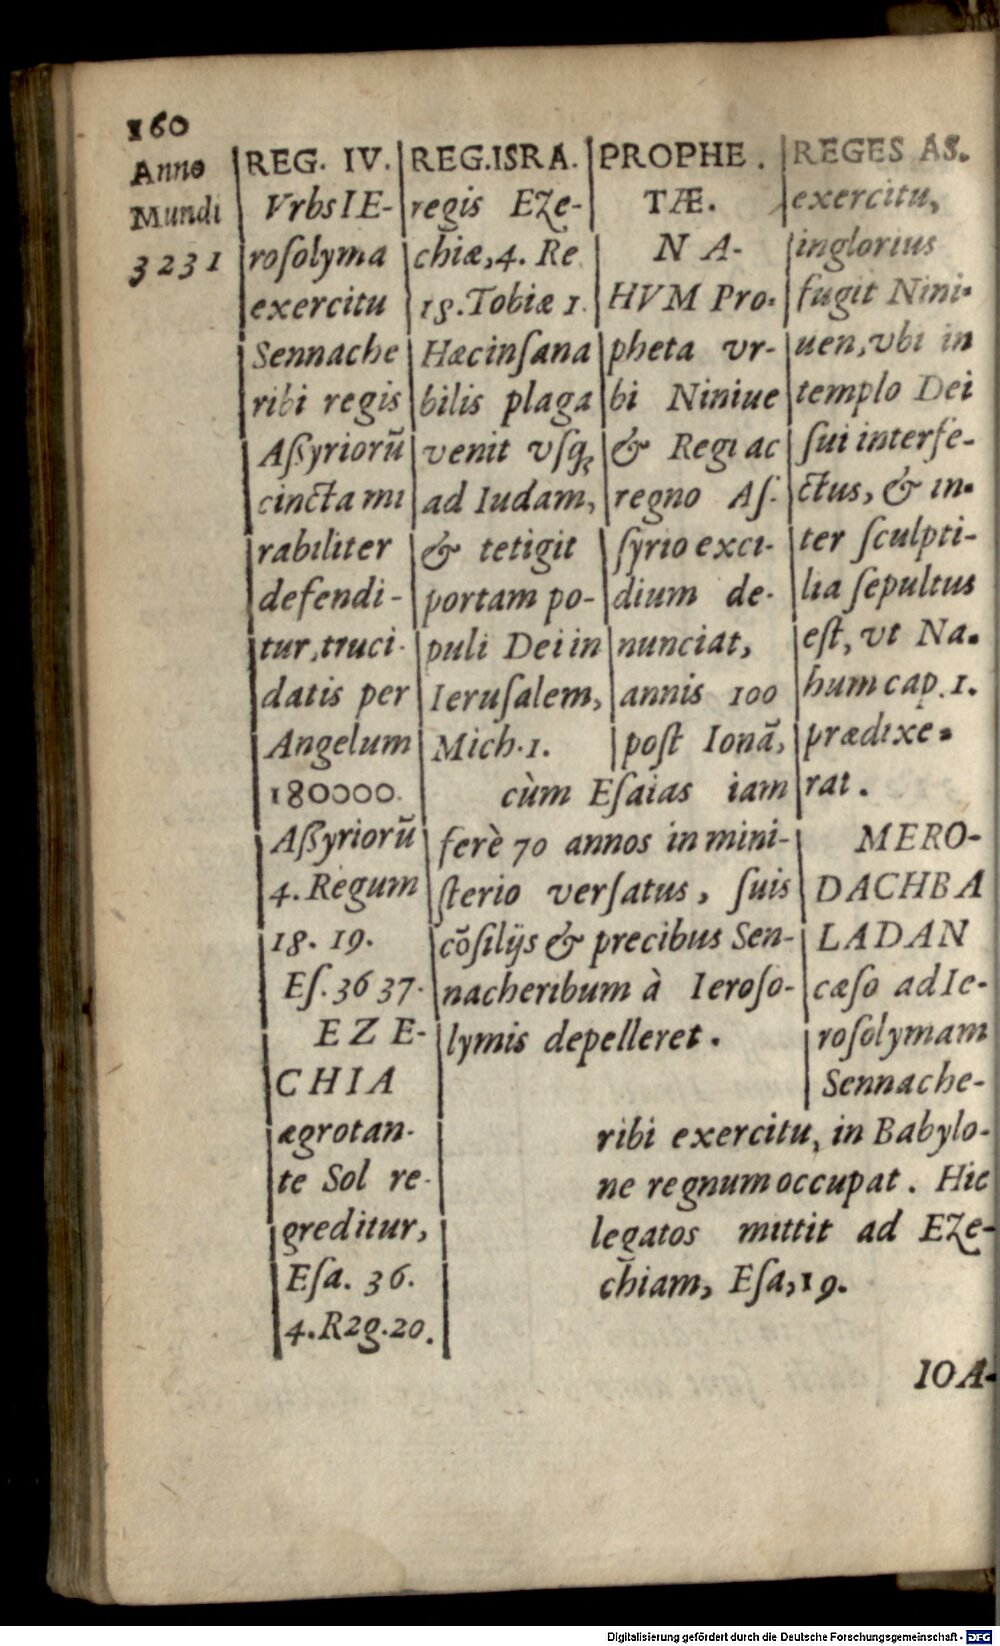 160
Anno
Mundi
3231
REG. IV.
Vrbs IE-
roſolyma
exercitu
Sennache
ribi regis
Aßyriorū
cincta mi
rabiliter
defendi-
tur, truci-
datis per
Angelum
180000.
Aßyriorū
4. Regum
18. 19.
Eſ. 36 37.
EZE-
CHIA
ægrotan-
te Sol re-
greditur,
Eſa. 36.
4. R2g. 20.
REG. ISRA.
regis Eze-
chiæ, 4. Re
18. Tobiæ 1.
Hæc inſana
bilis plaga
venit vſq₃
ad Iudam,
& tetigit
portam po-
puli Dei in
Ieruſalem,
Mich. 1.
PROPHE.
TÆ.
NA-
HVM Pro-
pheta vr-
bi Niniue
& Regi ac
regno Aſ-
ſyrio exci-
dium de-
nunciat,
annis 100
poſt Ionā,
cùm Eſaias iam
ferè 70 annos in mini-
ſterio verſatus, ſuis
cōſilijs & precibus Sen-
nacheribum à Ieroſo-
lymis depelleret.
REGES AS.
exercitu,
inglorius
fugit Nini-
uen, vbi in
templo Dei
ſui interfe-
ctus, & in-
ter ſculpti-
lia ſepultus
eſt, vt Na-
hum cap. 1.
prædixe-
rat.
MERO-
DACHBA
LADAN
cæſo ad Ie-
roſolymam
Sennache-
ribi exercitu, in Babylo-
ne regnum occupat. Hic
legatos mittit ad Eze-
chiam, Eſa, 19.
IOA-
Digitalisierung gefördert durch die Deutsche Forschungsgemeinschaft - DFG